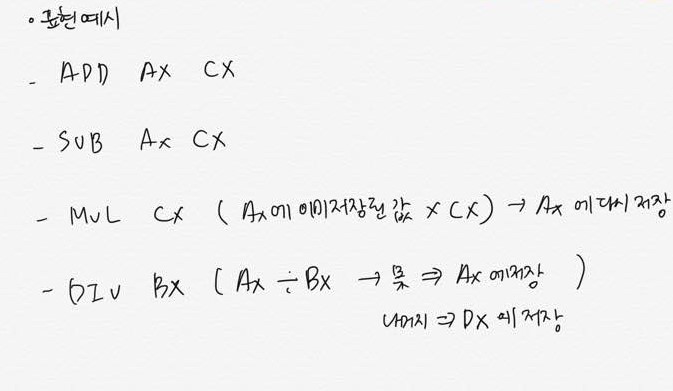 • 표현예시
- ADD AX CX
- SUB Ax CX
- MUL CX ( Ax에 이미저장된 값 × CX) → Ax 에다시 저장
- DIV BX ( Ax ÷ Bx → 몫 ⇒ Ax 에저장 )
나머지 ⇒ DX 에 저장